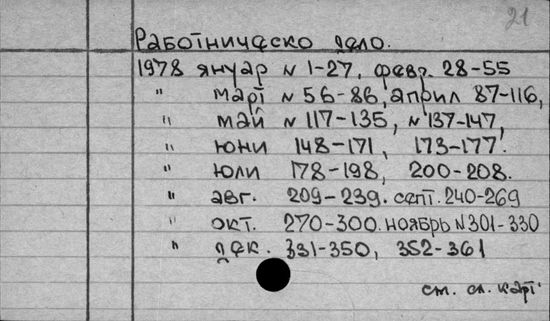 21
Работническо дело.
1978 януар N 1-27, февр. 28-55
" март N 56-86, април 87-116,
" май N 117-135, N 137-147,
" юни 148-171, 173-177.
" юли 178-198, 200-208.
" авг. 209-239. септ. 240-269
" окт. 270-300. ноябрь N 301-330
" дек. 331-350, 352-361
см. сл. карт